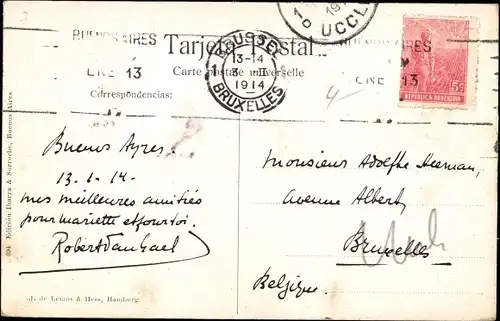 UCCLE
BUENOS AIRES
ENE 13
Tarjeta Postal
Carte postale universelle
BRUXELLES
13-14
3 II
1914
BRUXELLES
AIRES
ENE 13
REPUBLICA ARGENTINA
5c
4
Correspondencias:
Buenos Ayres
13.1.14.
mes meilleures amitiés
pour Mariette et pour toi.
Monsieur Adolphe
Avenue Albert,
Bruxelles
Belgique.
J. de Lemos & Hess, Hamburg
Edición Ibarra & Sorroche, Buenos Aires